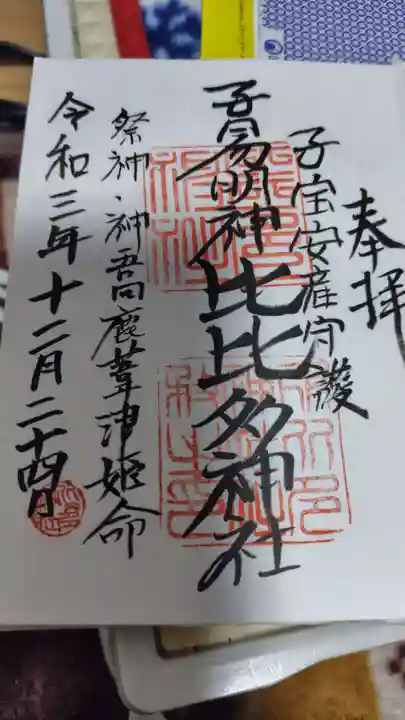 奉拝
子宝安産守護
子易明神 比比多神社
祭神・神吾田鹿葦津姫命
令和三年十二月二十四日